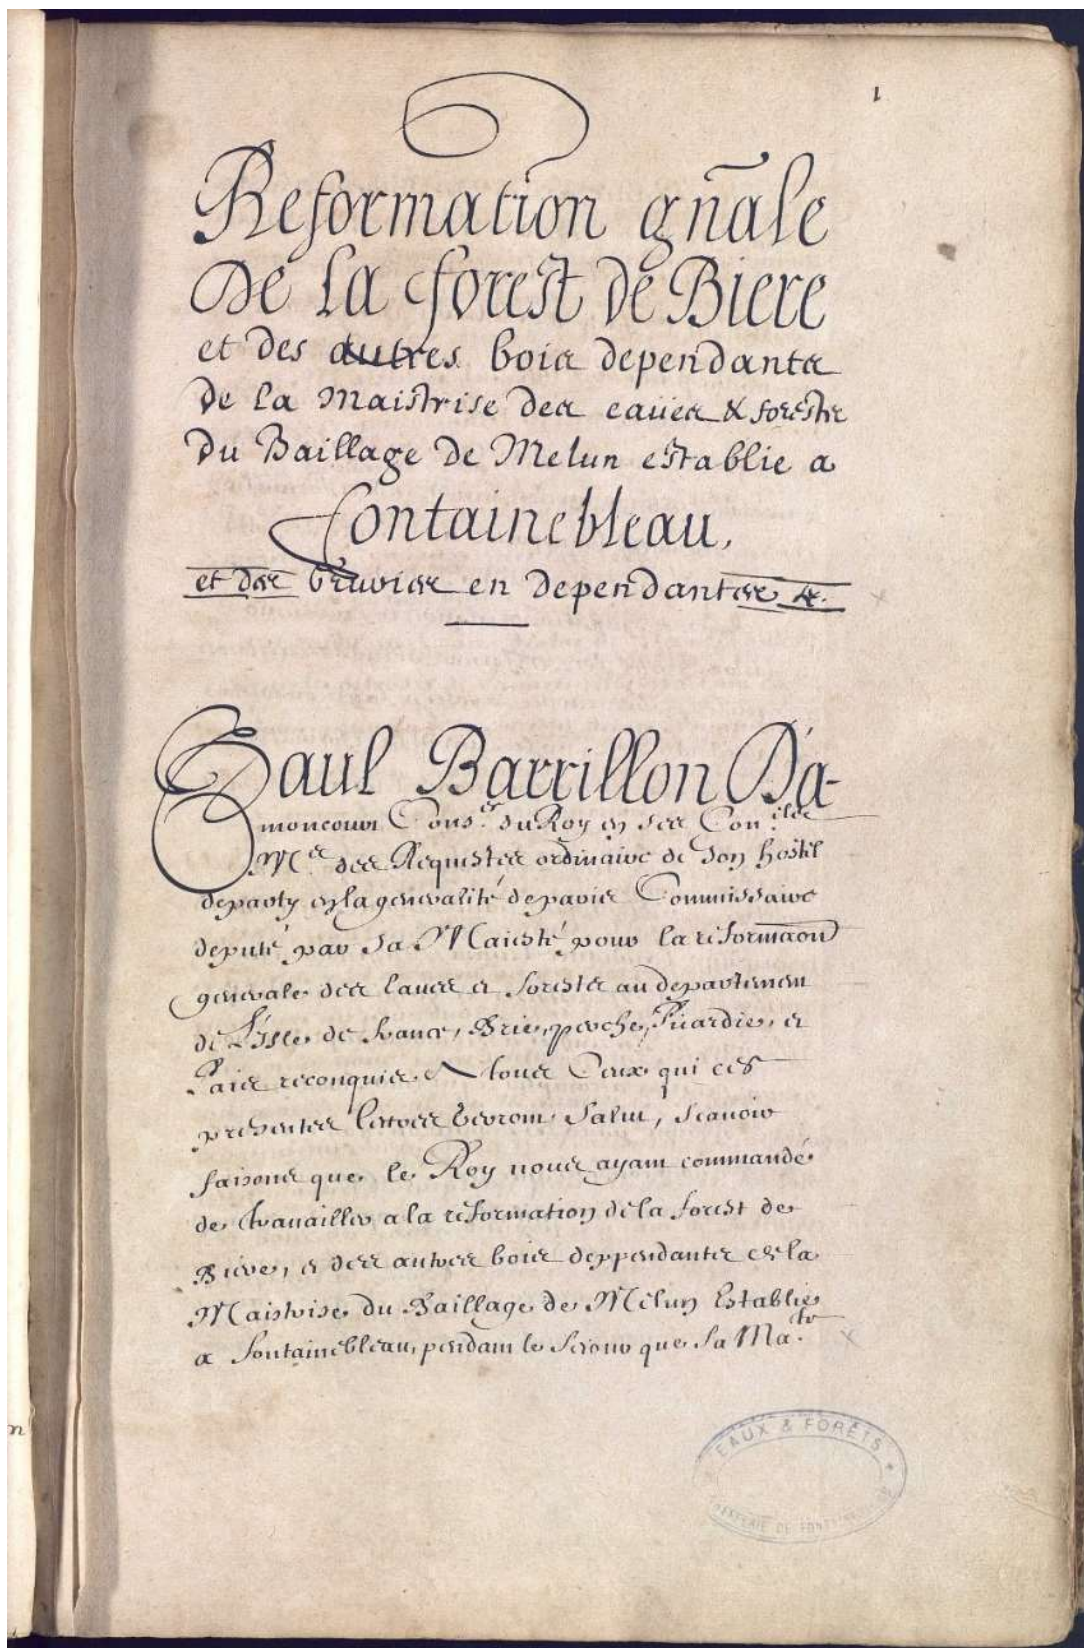 1
Reformation gñale
De La forest de Biere
et des autres bois dependants
de la Maistrise des eaües & forests
du Baillage de Melun establie a
fontainebleau,
et des bruvier en dependantes &.
Paul Barrillon D'a-
moncourt Cons.er du Roy en ses Con.eils
M.e des Requestes ordinaire de son hostel
departy en la generalité de paris Commissaire
deputé par sa Maiesté pour la reformaon
generale des eaues et forests au departement
de L'isle de france, Brie, perche, Picardie, et
Pais reconquis A tous Ceux qui ces
presentes lettres verront Salut, scauoir
faisons que le Roy nous ayant commandé
de trauailler a la reformation de la forest de
Biere, et des autres bois deppendants de la
Maistrise du Baillage de Melun Establie
a fontainebleau, pendant le seiour que sa Ma.té
EAUX & FORÊTS
DE FONTAINEBLEAU
n